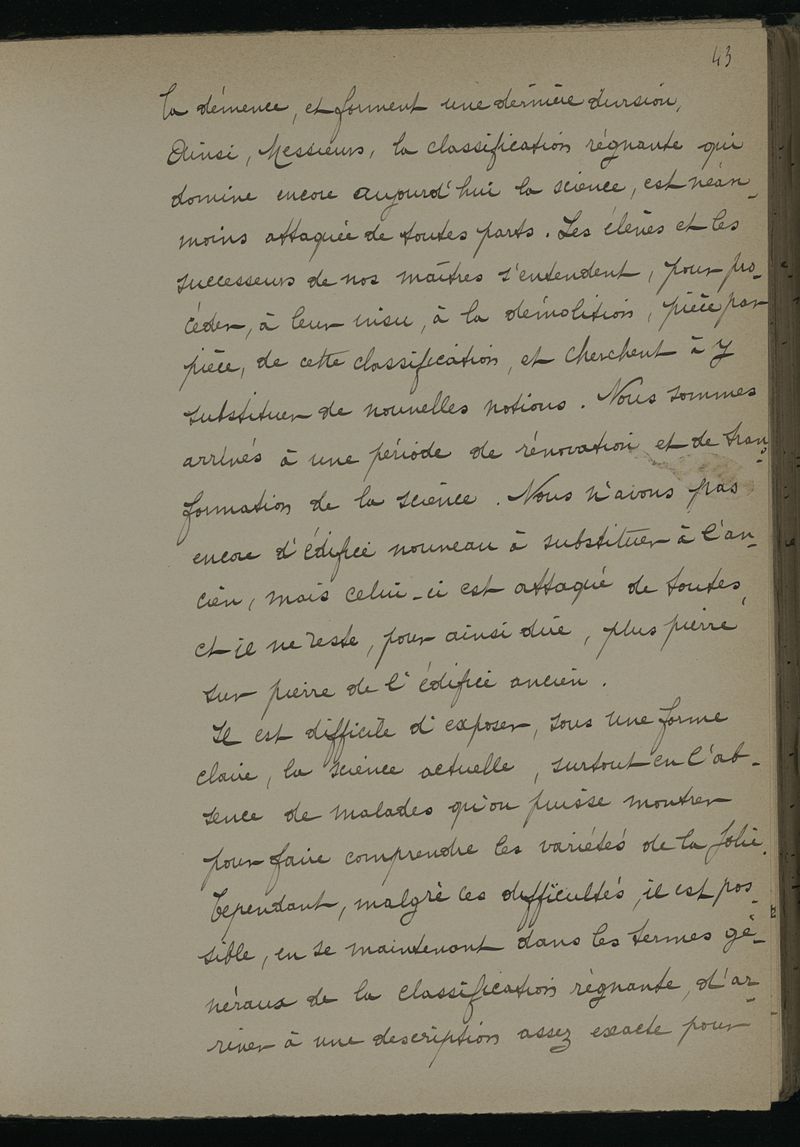 43
la démence, et forment une dernière division.
Ainsi, Messieurs, la classification régnante qui
domine encore aujourd'hui la science, est néan-
moins attaquée de toutes parts. Les élèves et les
successeurs de nos maîtres s'entendent, pour pro-
céder, à leur insu, à la démolition, pièce par
pièce, de cette classification, et cherchent à y
substituer de nouvelles notions. Nous sommes
arrivés à une période de rénovation et de trans-
formation de la science. Nous n'avons pas
encore d'édifice nouveau à substituer à l'an-
cien, mais celui-ci est attaqué de toutes,
et il ne reste, pour ainsi dire, plus pierre
sur pierre de l'édifice ancien.
Il est difficile d'exposer, sous une forme
claire, la science actuelle, surtout en l'ab-
sence de malades qu'on puisse montrer
pour faire comprendre les variétés de la folie.
Cependant, malgré ces difficultés, il est pos-
sible, en se maintenant dans les termes gé-
néraux de la classification régnante, d'ar-
river à une description assez exacte pour